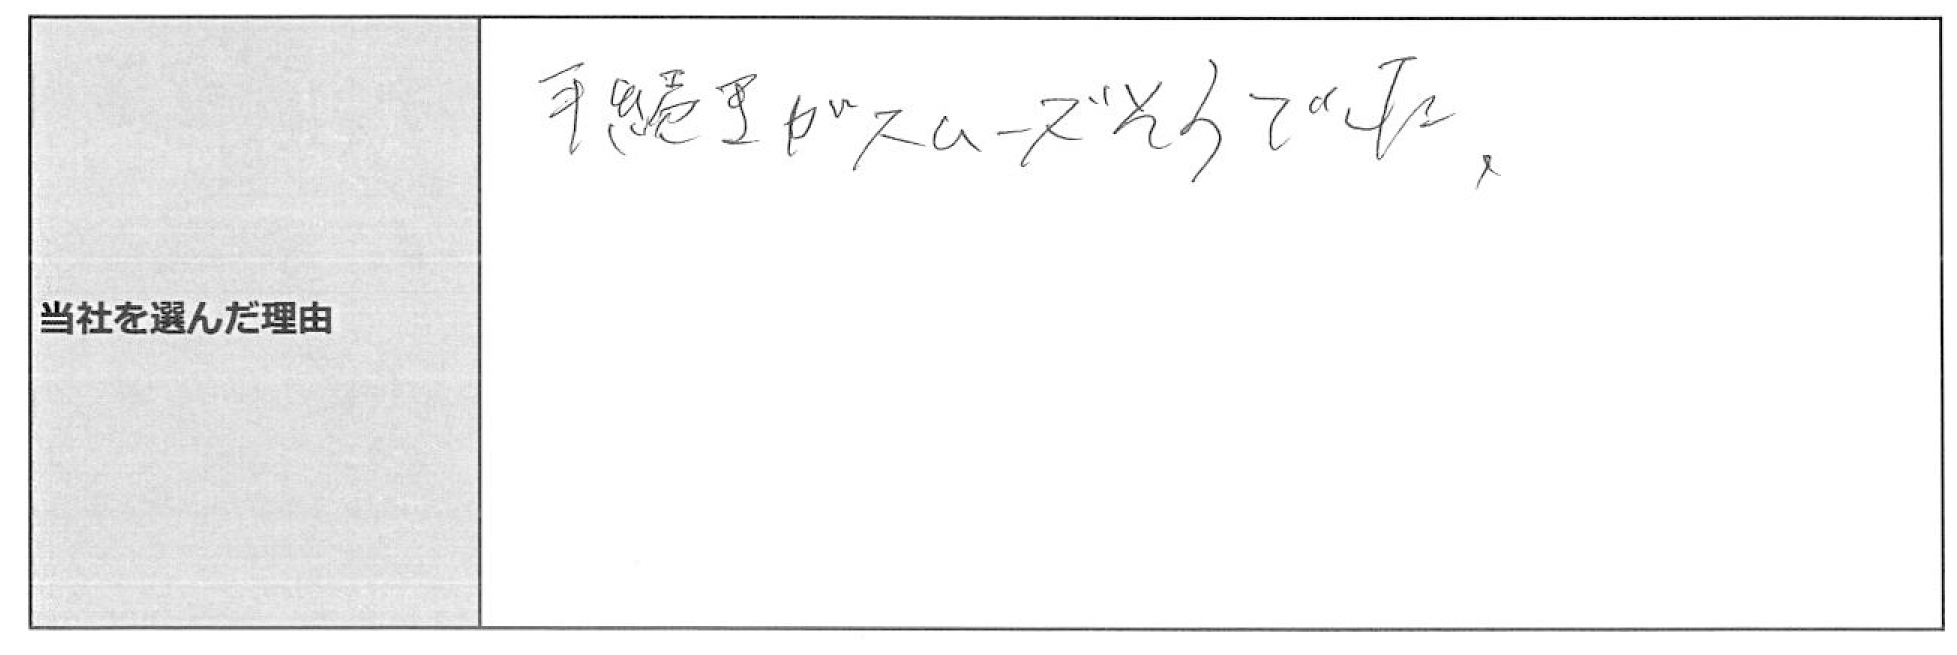 手続きがスムーズそうでした、
当社を選んだ理由